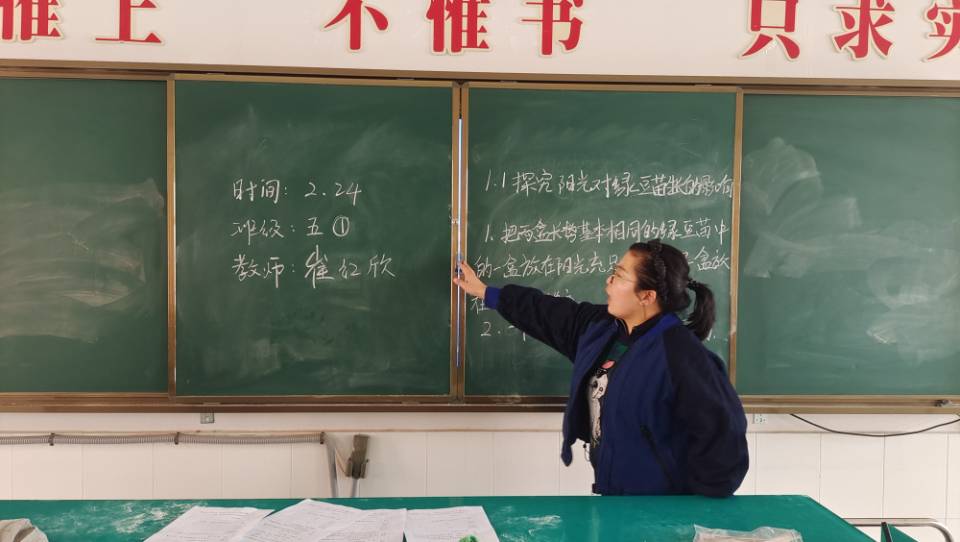 惟上 不惟书 只求实
时间：2.24
班级：五①
教师：崔红欣
1.1探究阳光对绿豆苗生长的影响
1.把两盒长势基本相同的绿豆苗中
的一盒放在阳光充足 一盒放
在
2.一